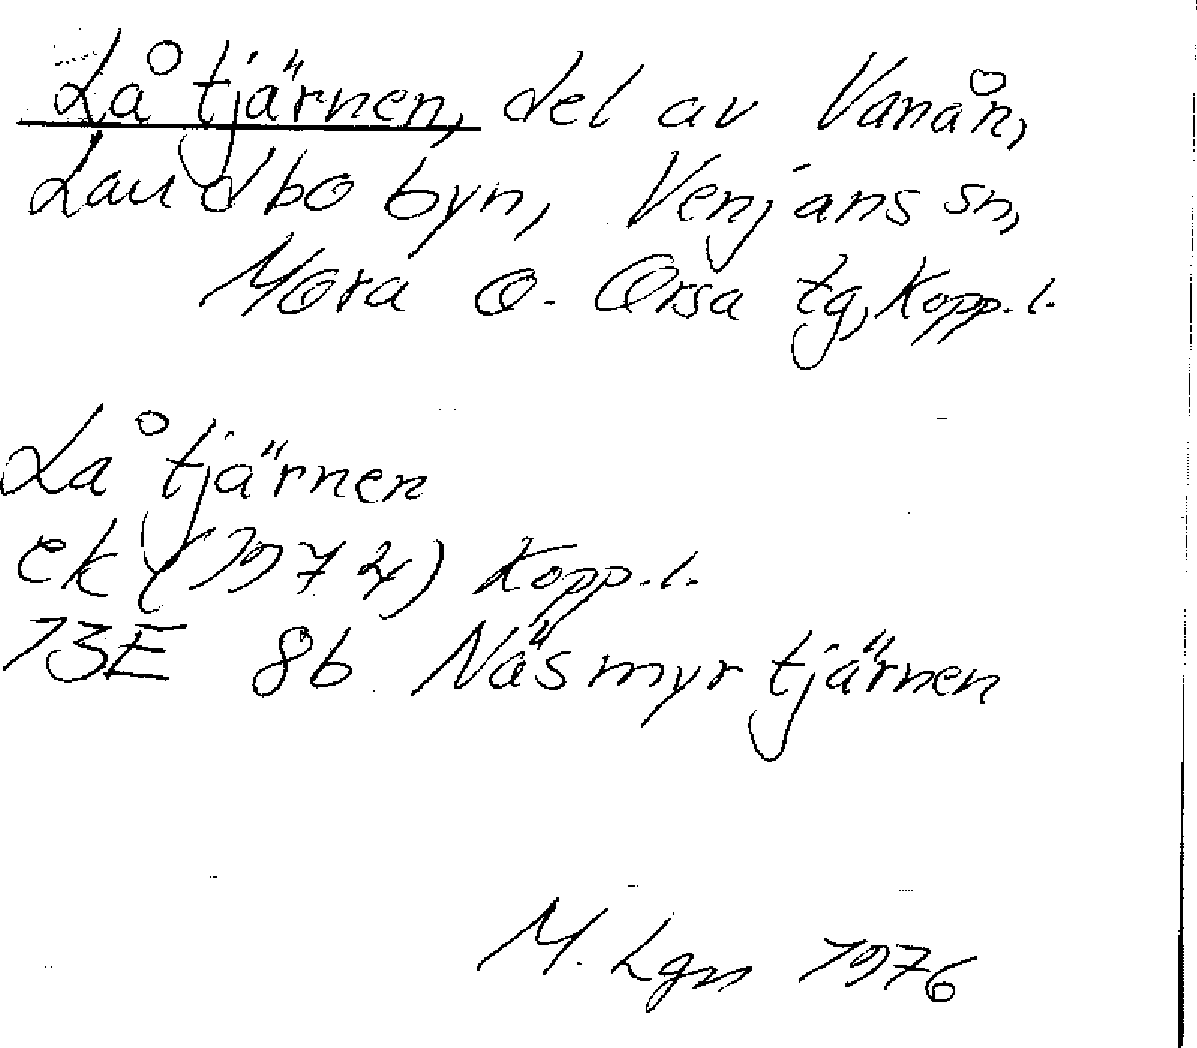 Låtjärnen, del av Vanån,
Landbobyn, Venjans sn,
Mora o. Orsa tg, Kopp. l.
Låtjärnen
ek (1974) Kopp. l.
13E 8b Näsmyrtjärnen
M. Lgn 1976